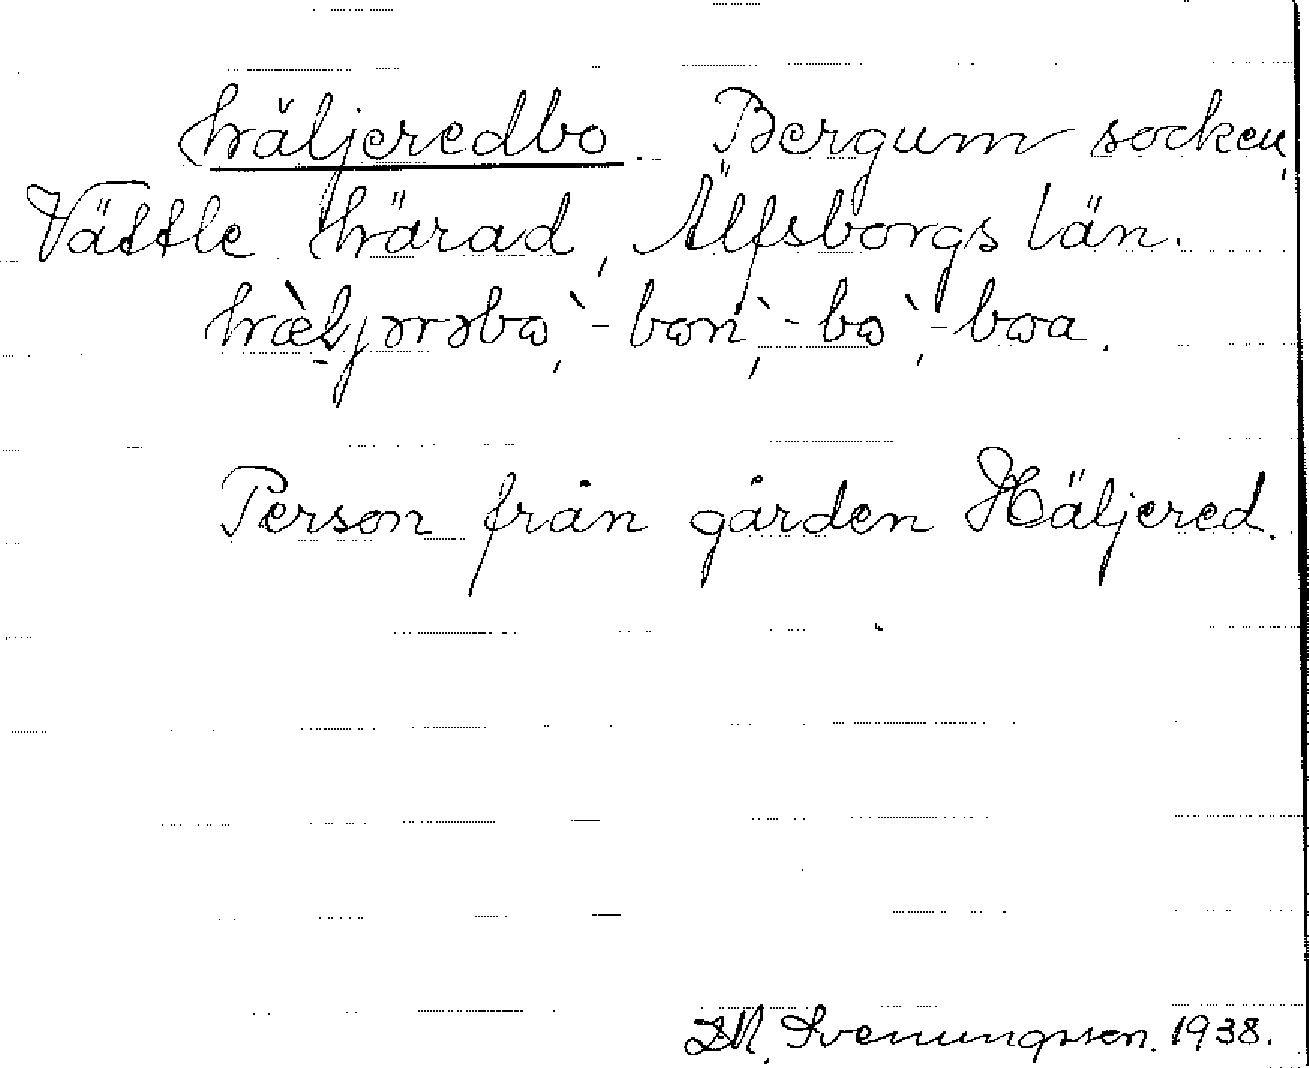 häljeredbo. Bergum socken,
Vättle härad, Älfsborgs län.
hæ̀ljərəbɷ, -bɷǹ, -bɷ̀, -bɷa.
Person från gården Häljered.
Svenungsson. 1938.